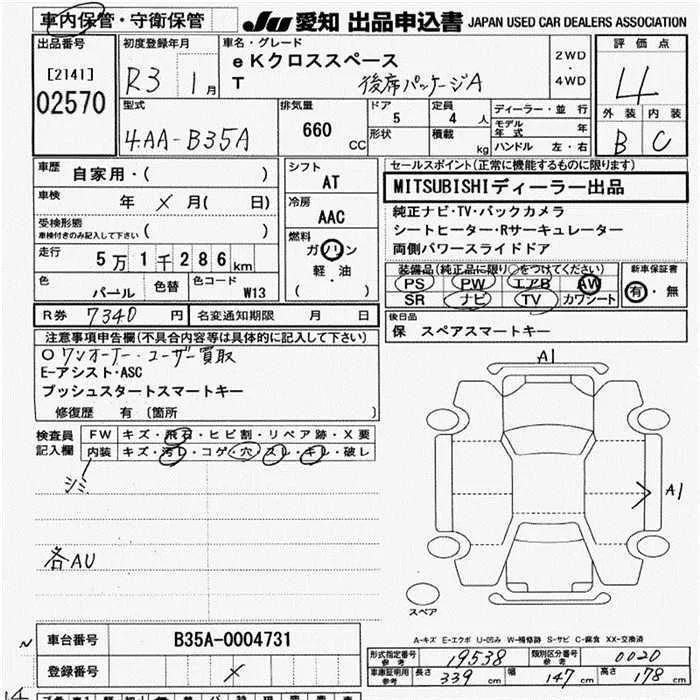 車内保管・守衛保管
JU 愛知 出品申込書 JAPAN USED CAR DEALERS ASSOCIATION
出品番号
[2141]
02570
初度登録年月
R3 1月
車名・グレード
eKクロススペース
T 後席パッケージA
2WD
・
4WD
評価点
4
外装 内装
B C
型式
4AA-B35A
排気量
660 CC
ドア
5
形状
定員
4 人
積載
kg
ディーラー・並行
モデル年式 年
ハンドル 左・右
車歴
自家用・( )
車検
年 × 月( 日)
受検形態
車検付きのみ記入して下さい ( )
走行
5万1千286km
色
パール
色替
色コード
W13
シフト
AT
冷房
AAC
燃料
ガソリン
軽・油
( )
セールスポイント(正常に機能するものに限ります)
MITSUBISHIディーラー出品
純正ナビ・TV・バックカメラ
シートヒーター・Rサーキュレーター
両側パワースライドドア
装備品(純正品に限り○をつけてください)
PS PW エアB AW
SR ナビ TV カワシート
新車保証書
有・無
R券 7340 円
名変通知期限 月 日
後日品
保 スペアスマートキー
注意事項申告欄(不具合内容等は具体的に記入して下さい)
○ワンオーナー・ユーザー買取
E-アシスト・ASC
プッシュスタートスマートキー
修復歴 有 (箇所 )
検査員
記入欄
FW キズ・飛石・ヒビ割・リペア跡・X要
内装 キズ・汚レ・コゲ・穴・スレ・キレ・破レ
シミ
各AU
A1
A1
スペア
A-キズ E-エクボ U-凹み W-補修跡 S-サビ C-腐食 XX-交換済
車台番号 B35A-0004731
登録番号 ×
形式指定番号
参考
19538
類別区分番号
参考
0020
車庫証明用
参考
長さ 339 cm 幅 147 cm 高さ 178 cm